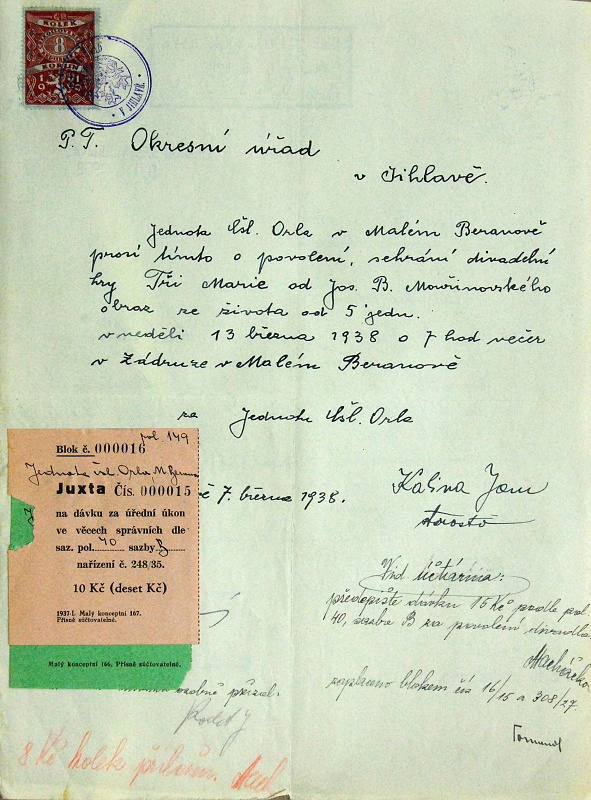 KOLEK
8
KORUN
V JIHLAVĚ
P.T. Okresní úřad
v Jihlavě.
Jednota čsl. Orla v Malém Beranově
prosí tímto o povolení, sehrání divadelní
hry Tři Marie od Jos. B. Mouřinovského
obraz ze života od 5 jedn.
v neděli 13 března 1938 o 7 hod večer
v Zádruze v Malém Beranově
za Jednotu čsl. Orla
pol. 149
Blok č. 000016
Jednota čsl. Orla M.
Juxta Čís. 000015
na dávku za úřední úkon
ve věcech správních dle
saz. pol. 40 sazby B
nařízení č. 248/35.
10 Kč (deset Kč)
1937-I. Malý konceptní 167.
Přísně súčtovatelné.
Malý konceptní 166, Přísně súčtovatelné.
ě 7. března 1938.
Kalina Jan
starosta
Vid účtárna:
předepište dávku 15 Kč podle pol
40, sazba B za povolení divadla.
zaplaceno blokem čís 16/15 a 308/27.
osobně
8 Kč kolek